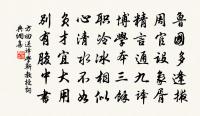 魯國多逢掖
周官設象胥
精言通九譯
博學夲三餘
職冷冰相似
心清水不如
負才宜大用
別有腹中書
方回送譯學靳教授